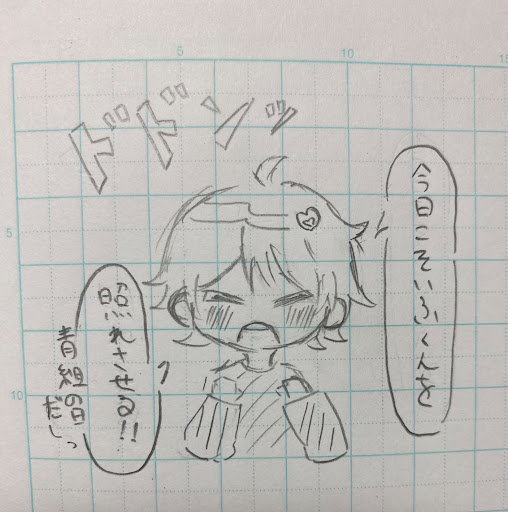 5
10
15
5
10
ドドンッ
今日こそいふくんを
照れさせる!!
青組の日
だしっ